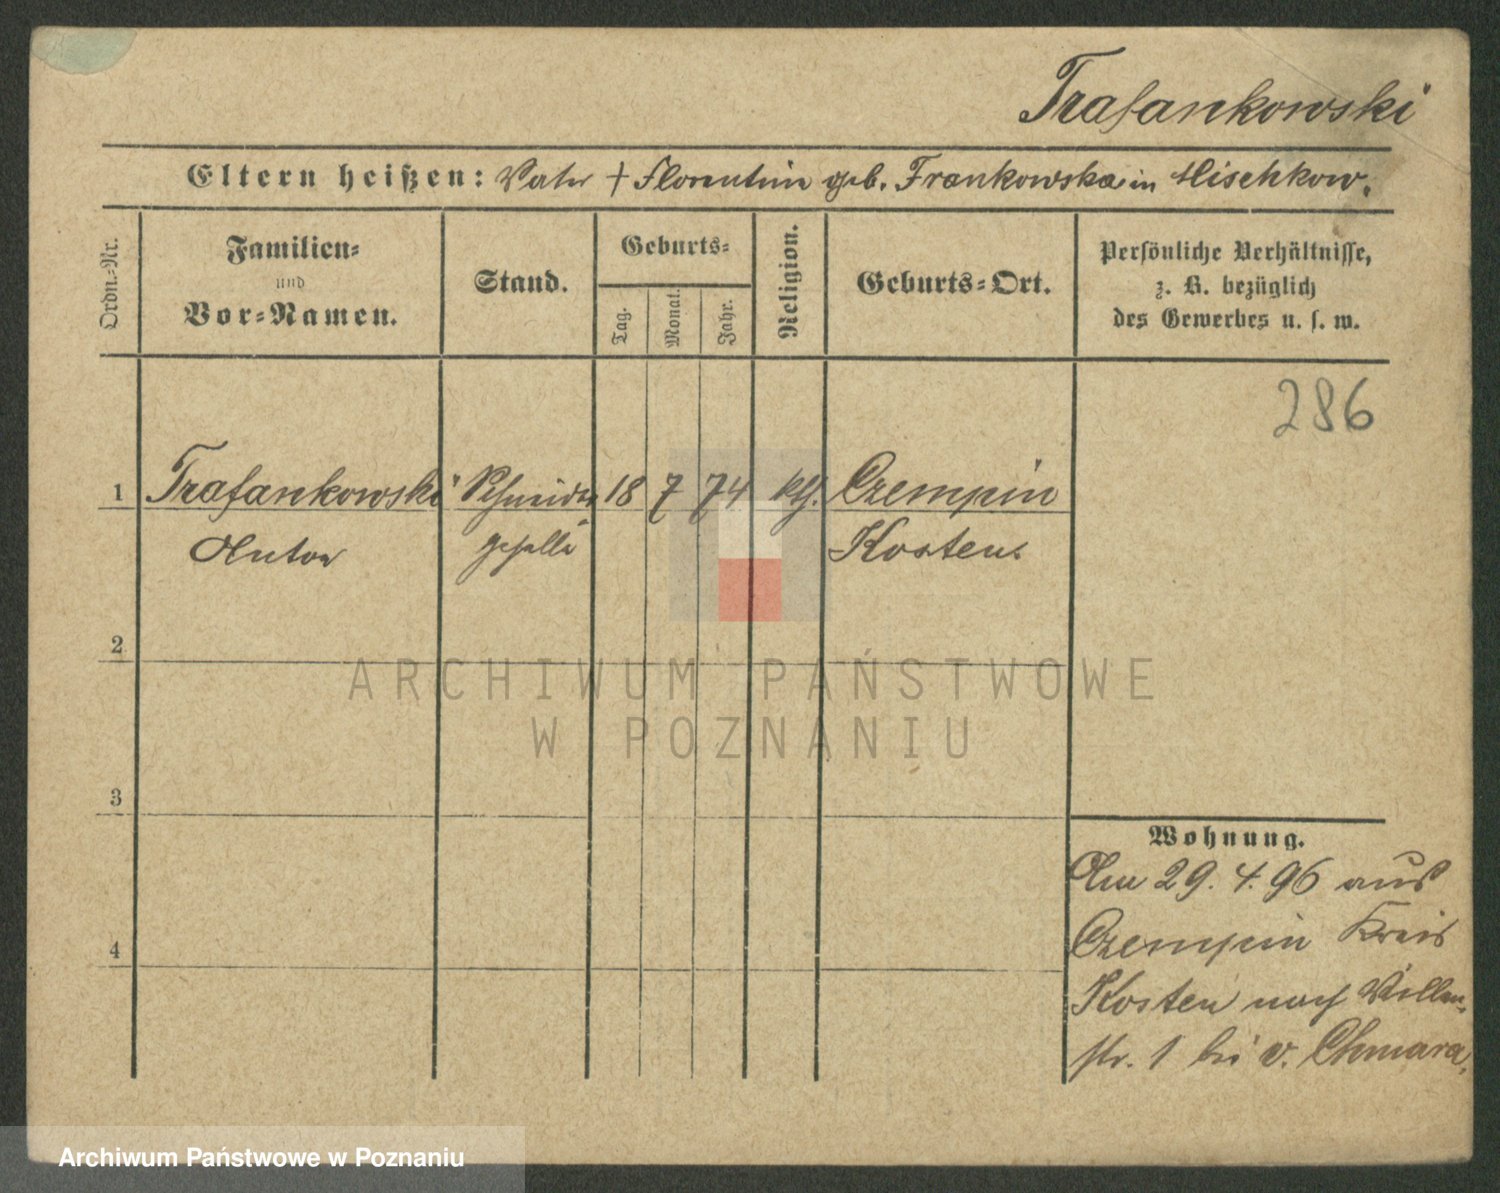 Trafankowski
Eltern heißen: Vater + Florentine geb. Frankowska in Hischkow.
Ordn.-Nr.
Familien-
und
Vor-Namen.
Stand.
Geburts-
Tag.
Monat.
Jahr.
Religion.
Geburts-Ort.
Persönliche Verhältnisse,
z. B. bezüglich
des Gewerbes u. s. w.
286
1 Trafankowski Schneider 18 7 74 kth. Czempin
Anton geselle Kosten
2
ARCHIWUM PAŃSTWOWE
W POZNANIU
3
Wohnung.
Am 29. 4. 96 aus
4 Czempin Kreis
Kosten nach Villen-
str. 1 bei v. Chmara.
Archiwum Państwowe w Poznaniu